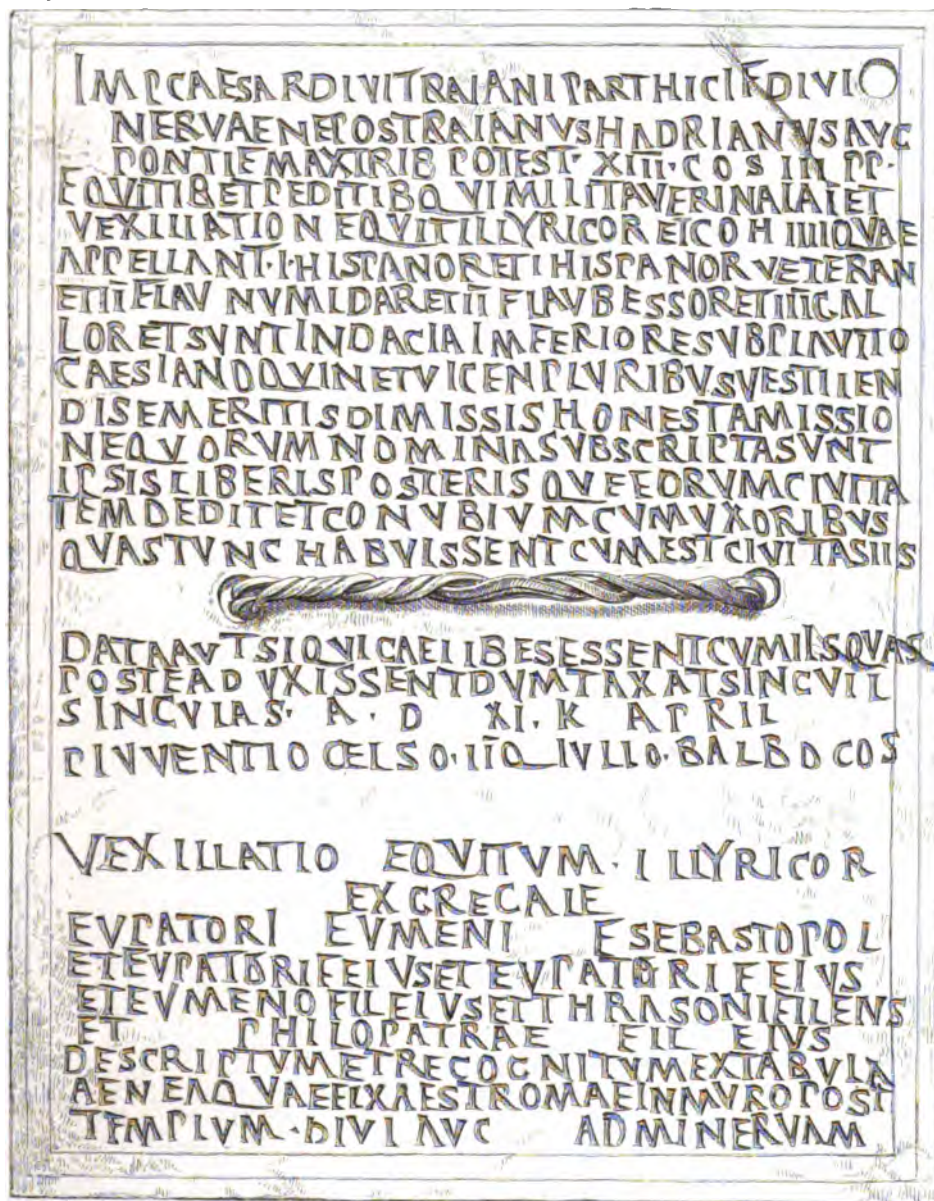 IMPCAESARDIVITRAIANIPARTHICIFDIVI
NERVAENEPOSTRAIANVSHADRIANVSAVG
PONTIFMAXTRIBPOTEST·XIII·COSIIIPP·
EQVITIBETPEDITIBQVIMILITAVERINALAIET
VEXILLATIONEQVITILLYRICORETCOHIIIIQVAE
APPELLANT·I·HISPANORETIHISPANORVETERAN
ETIIFLAVNVMIDARETIIIFLAVBESSORETIIIIGAL
LORETSVNTINDACIAIMFERIORESVBPLAVTIO
CAESIANOQVINETVICENPLVRIBVSVESTIIEN
DISEMERITISDIMISSISHONESTAMISSIO
NEQVORVMNOMINASVBSCRIPTASVNT
IPSISLIBERISPOSTERISQVEEORVMCIVITA
TEMDEDITETCONVBIVMCVMVXORIBVS
QVASTVNCHABVISSENTCVMESTCIVITASIIS
DATAAVTSIQVICAELIBESESSENTCVMIISQVAS
POSTEADVXISSENTDVMTAXATSINGVIL
SINGVLAS· A · D XI · K APRIL
PIVVENTIO CELSO·IIQ IVLLO·BALBO COS
VEXILLATIO EQVITVM · ILLYRICOR
EXGREGALE
EVPATORI EVMENI F SEBASTOPOL
ETEVPATORIFEIVSETEVPATORIFEIVS
ETEVMENOFILEIVSETTHRASONIFILEIVS
ET PHILOPATRAE FIL EIVS
DESCRIPTVMETRECOGNITVMEXTABVLA
AENEAQVAEFIXAESTROMAEINMVROPOST
TEMPLVM·DIVIAVG ADMINERVAM